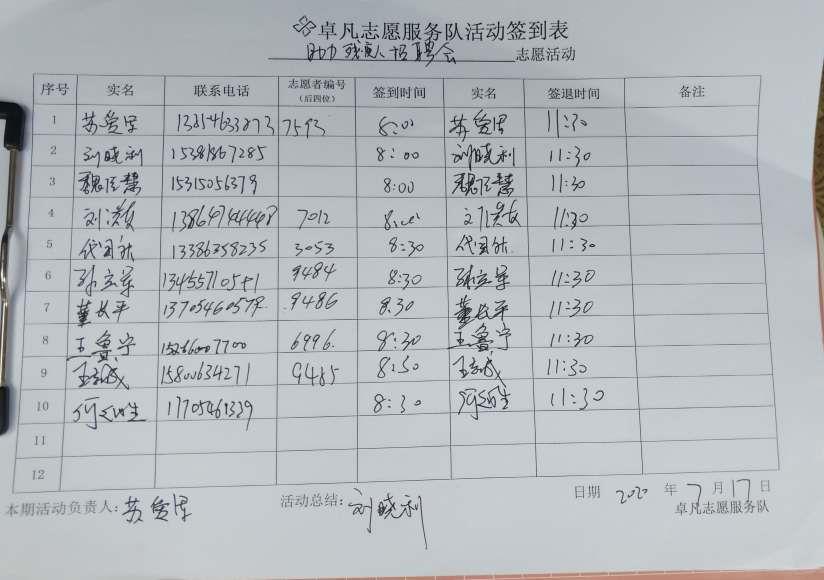 卓凡志愿服务队活动签到表
助力残疾人招聘会 志愿活动
序号 实名 联系电话 志愿者编号（后四位） 签到时间 实名 签退时间 备注
1 苏爱军 7593 8:00 苏爱军 11:30
2 刘晓利 15381867285 8:00 刘晓利 11:30
3 15315056379 8:00 11:30
4 刘洪敏 13864744448 7012 8:00 刘洪敏 11:30
5 代国新 13386358235 3053 8:30 代国新 11:30
6 孙立军 9484 8:30 孙立军 11:30
7 董长平 9486 8:30 董长平 11:30
8 王鲁宁 6996 8:30 王鲁宁 11:30
9 15800634271 9485 8:50 11:30
10 17705461339 8:30 11:30
11
12
本期活动负责人: 苏爱军 活动总结: 刘晓利 日期 2020 年 7 月 17 日
卓凡志愿服务队